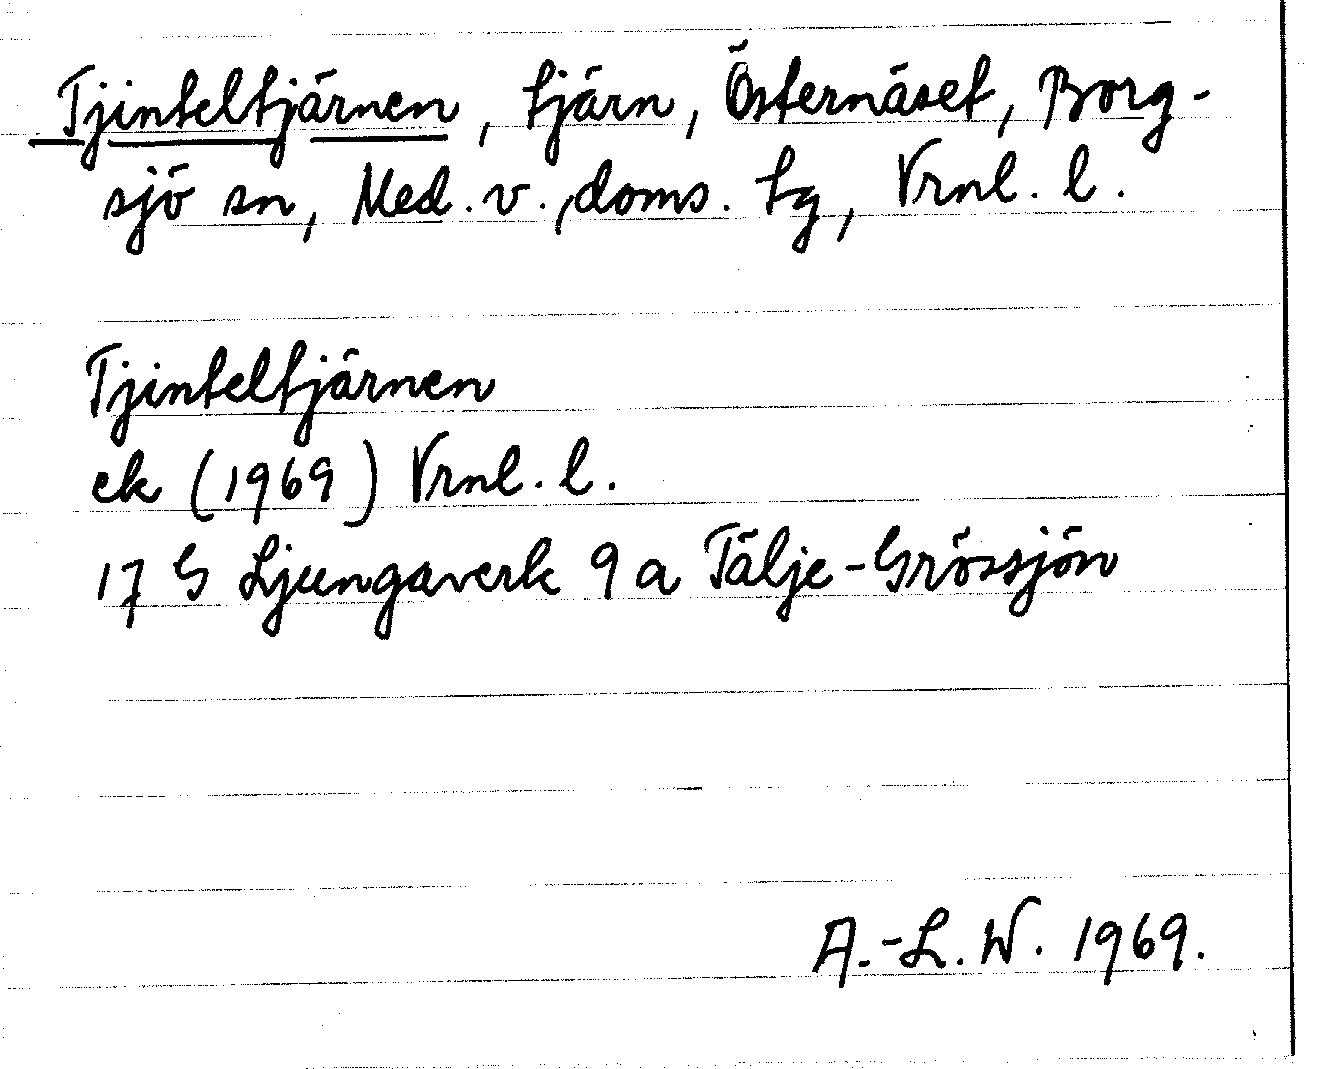 Tjinteltjärnen, tjärn, Östernäset, Borg-
sjö sn, Med. v., doms. tg, Vrnl. l.
Tjinteltjärnen
ek (1969) Vrnl. l.
17 G Ljungaverk 9 a Tälje-Grössjön
A.-L. W. 1969.